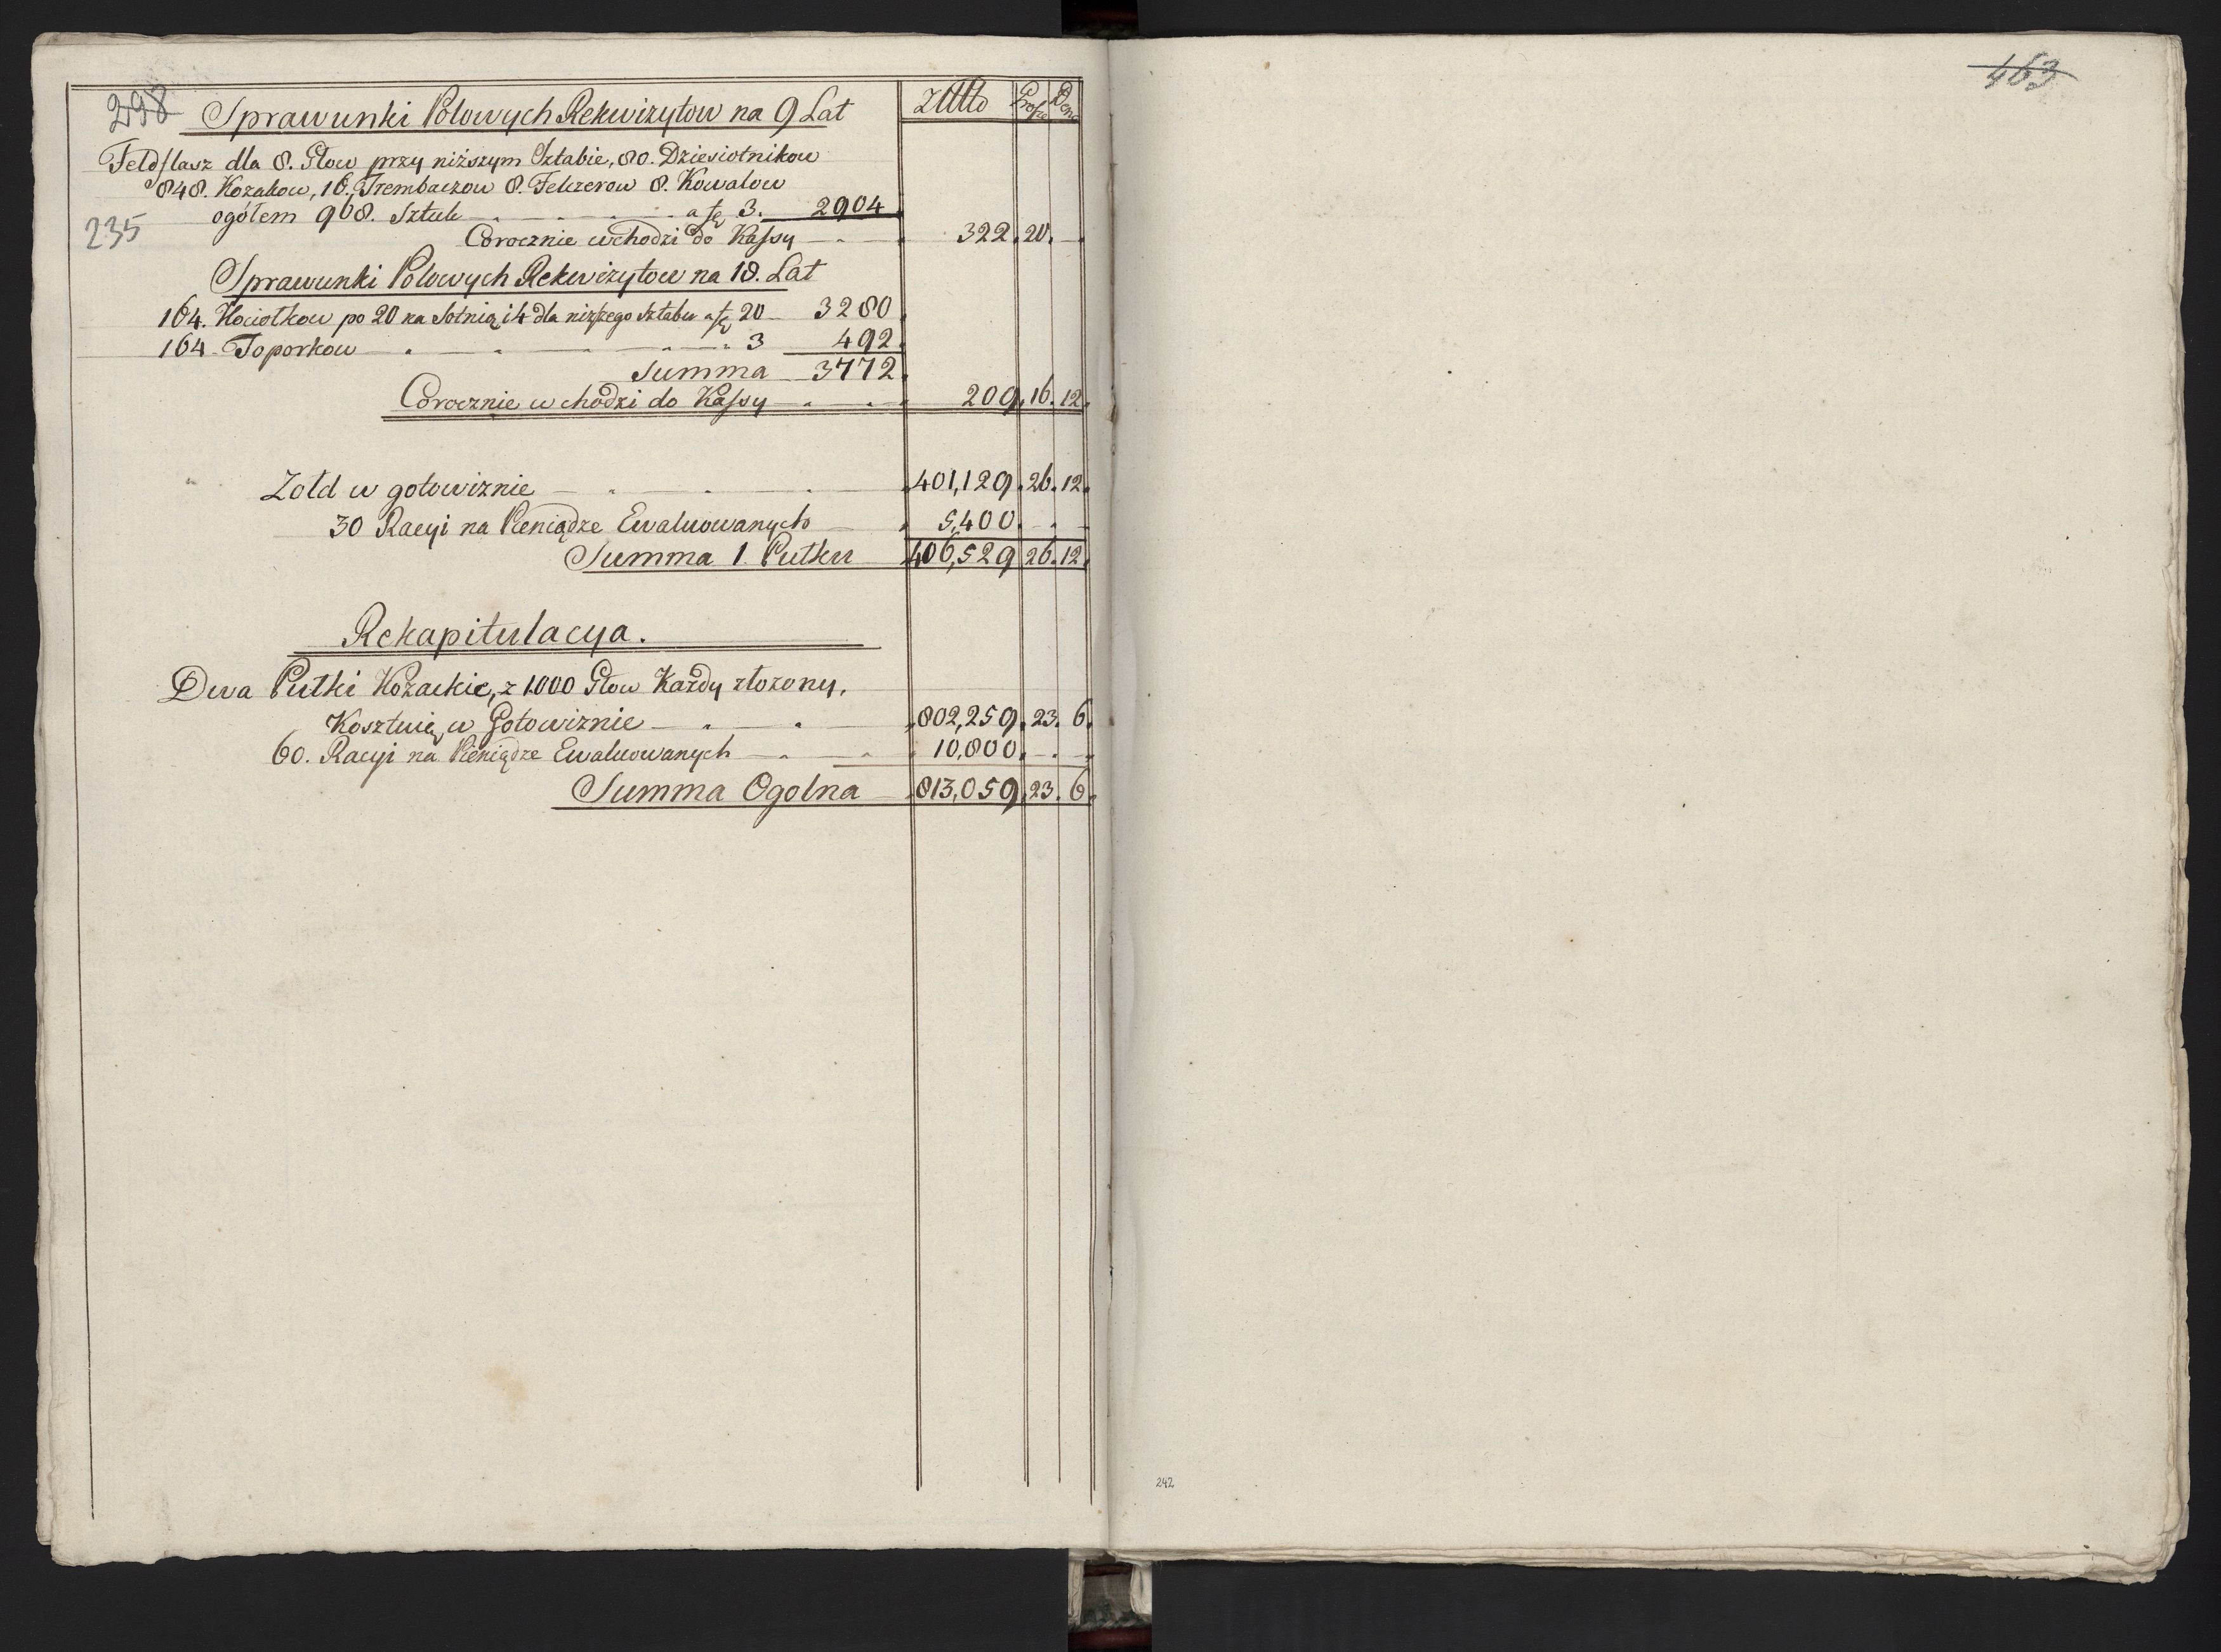 298
Sprawunki Polowych Rekwizytow na 9 Lat Złłło Grosze Dena
Feldflasz dla 8. Głow przy niższym Sztabie, 80. Dziesiotnikow
848. Kozakow, 16. Trembaczow 8. Felczerow 8. Kowalow
ogółem 968. Sztuk a 3. 2904
235
Corocznie wchodzi do Kassy 322. 20. —
Sprawunki Polowych Rekwizytow na 18. Lat
164. Kociołkow po 20 na Sotnią i 4 dla niższego sztabu a 20 3280
164 Toporkow 3 492
Summa 3772
Corocznie wchodzi do Kassy 209. 16. 12.
Zołd w gotowiznie 401,129. 26. 12.
30 Racyi na Pieniądze Ewaluowanych 5,400. — —
Summa 1. Pułku 406,529 26. 12.
Rekapitulacya.
Dwa Pułki Kozackie, z 1000 Głow Każdy złozony,
Kosztuią w Gotowiznie 802,259. 23. 6.
60. Racyi na Pieniądze Ewaluowanych 10,800. — —
Summa Ogolna 813,059. 23. 6.
463
242